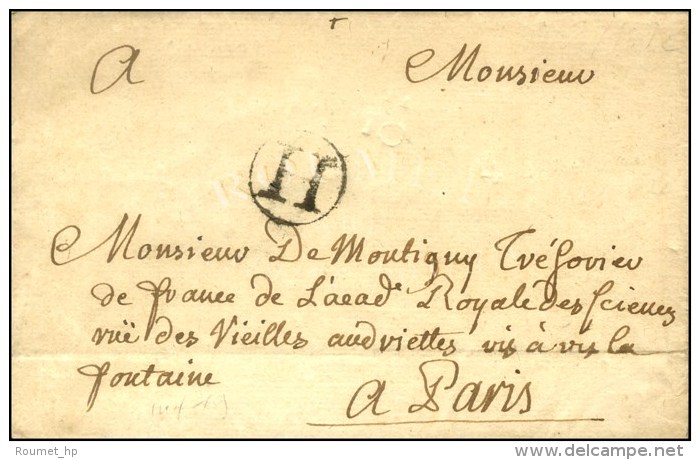 A Monsieur
H
Monsieur De Montigny Trésorier
de france de L'acad^e Royale des sciences
ruë des Vieilles audriettes vis à vis la
fontaine
A Paris
Roumet_hp
delcampe.net